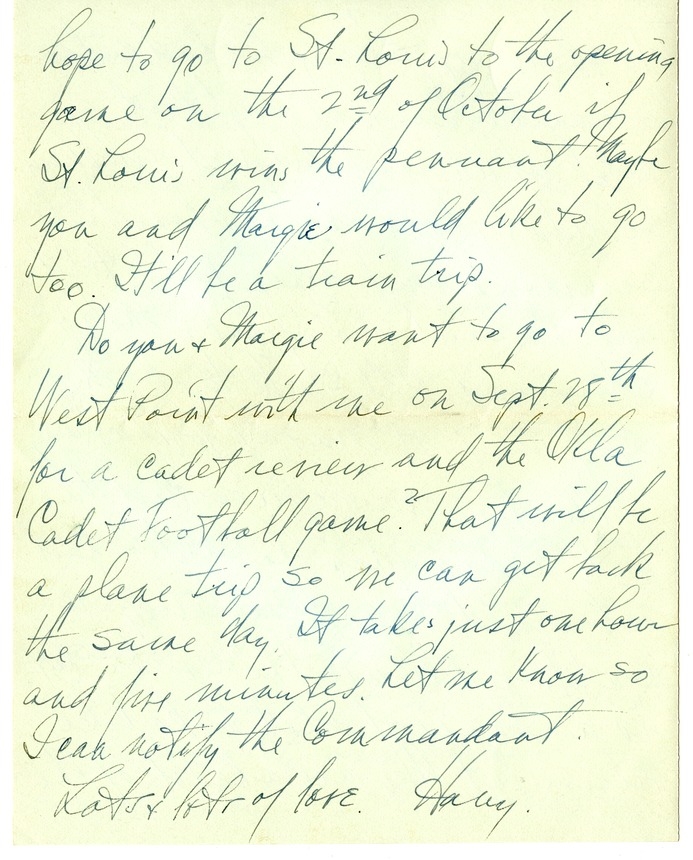 hope to go to St. Louis to the opening
game on the 2nd of October if
St. Louis wins the pennant! Maybe
you and Margie would like to go
too. It'll be a train trip.
Do you & Margie want to go to
West Point with me on Sept. 28th
for a cadet review and the Okla
Cadet Football game? That will be
a plane trip so we can get back
the same day. It takes just one hour
and five minutes. Let me know so
I can notify the Commandant.
Lots & lots of love. Harry.